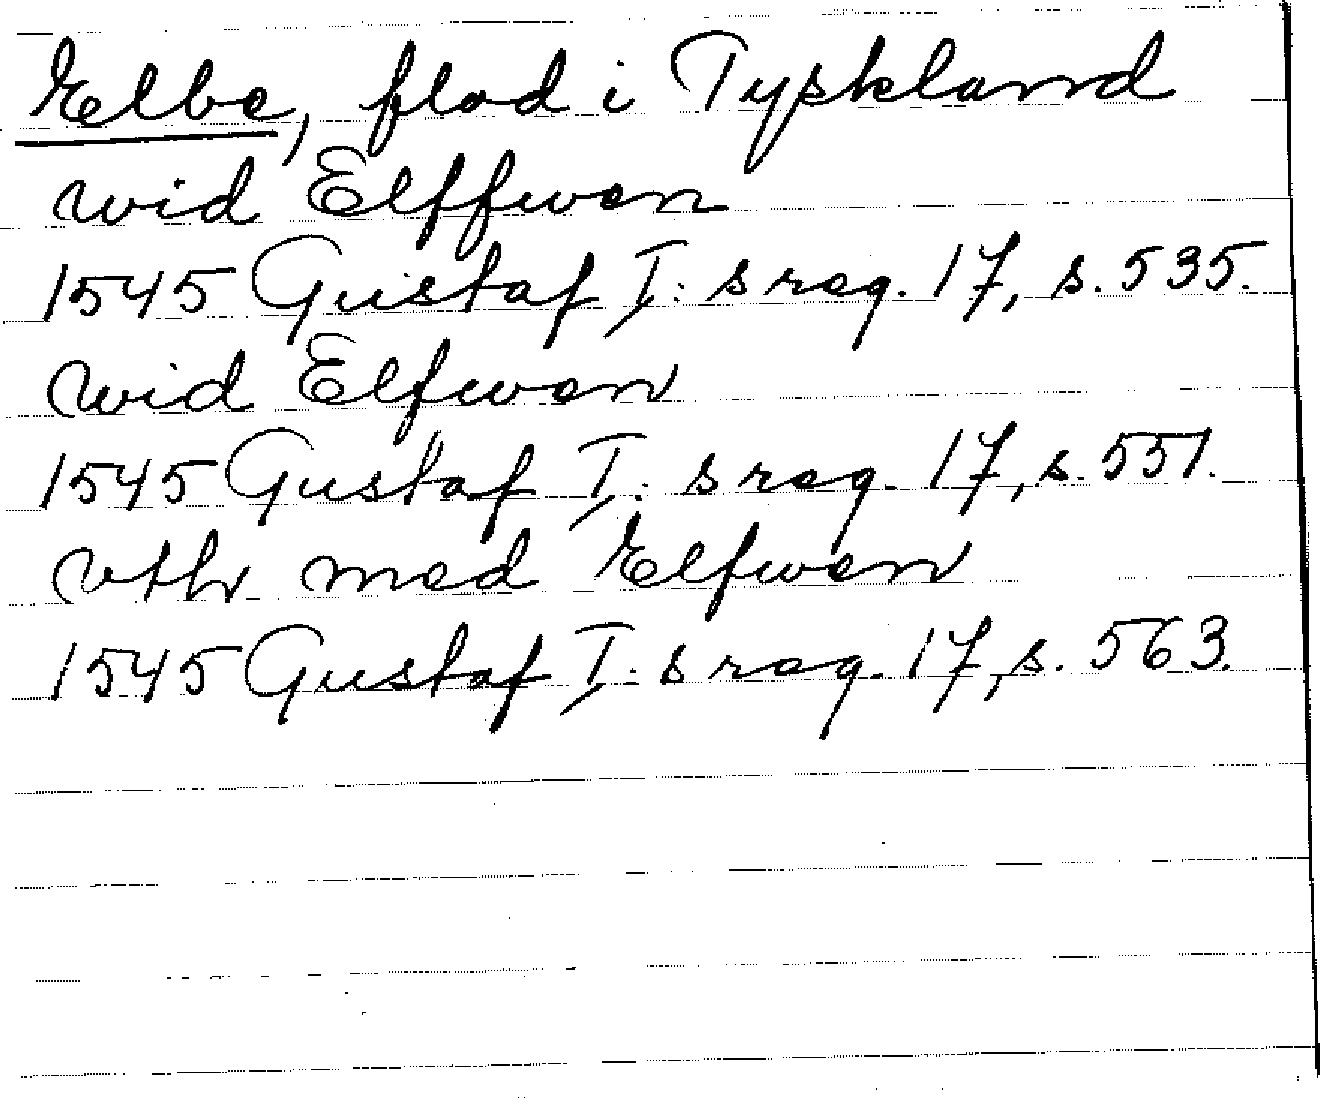 Elbe, flod i Tyskland
wid Elffwen
1545 Gustaf I:s reg. 17, s. 535.
wid Elfwen
1545 Gustaf I:s reg. 17, s. 551.
vthr med Elfwen
1545 Gustaf I:s reg. 17, s. 563.